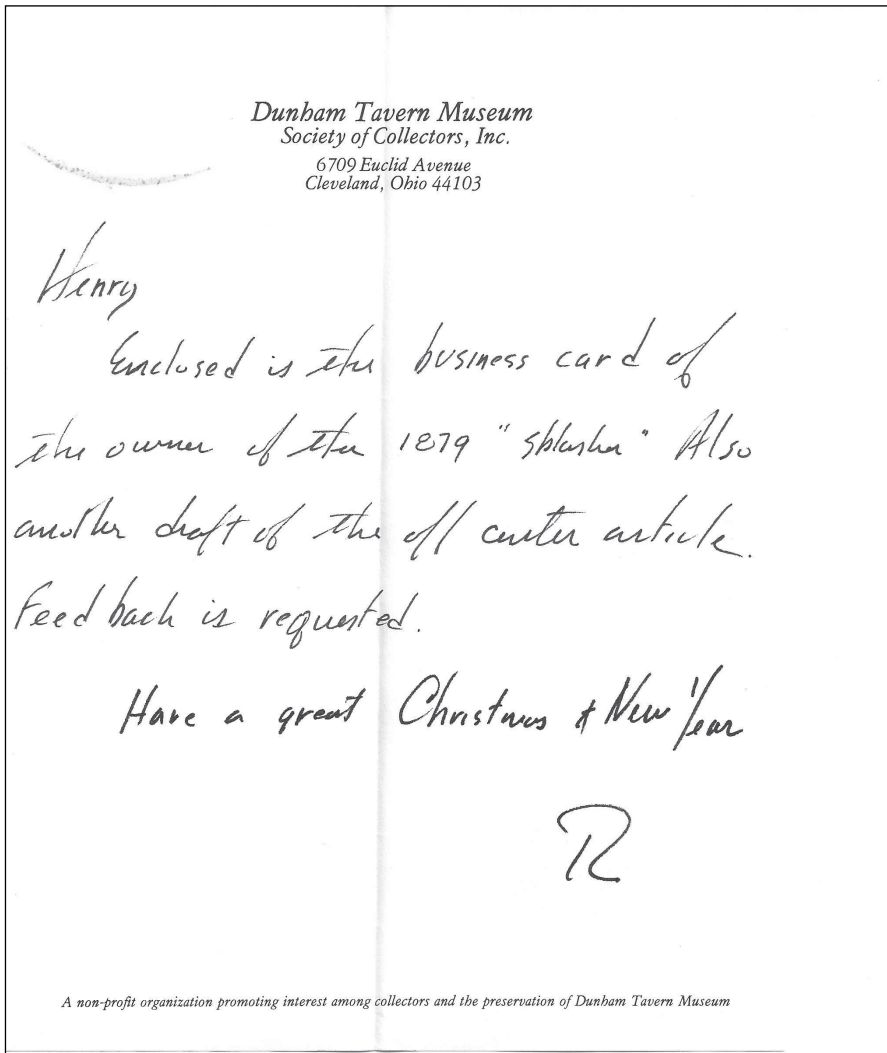 Dunham Tavern Museum
Society of Collectors, Inc.
6709 Euclid Avenue
Cleveland, Ohio 44103
Henry
Enclosed is the business card of
the owner of the 1879 "splasher" Also
another draft of the off center article.
Feedback is requested.
Have a great Christmas & New Year
R
A non-profit organization promoting interest among collectors and the preservation of Dunham Tavern Museum